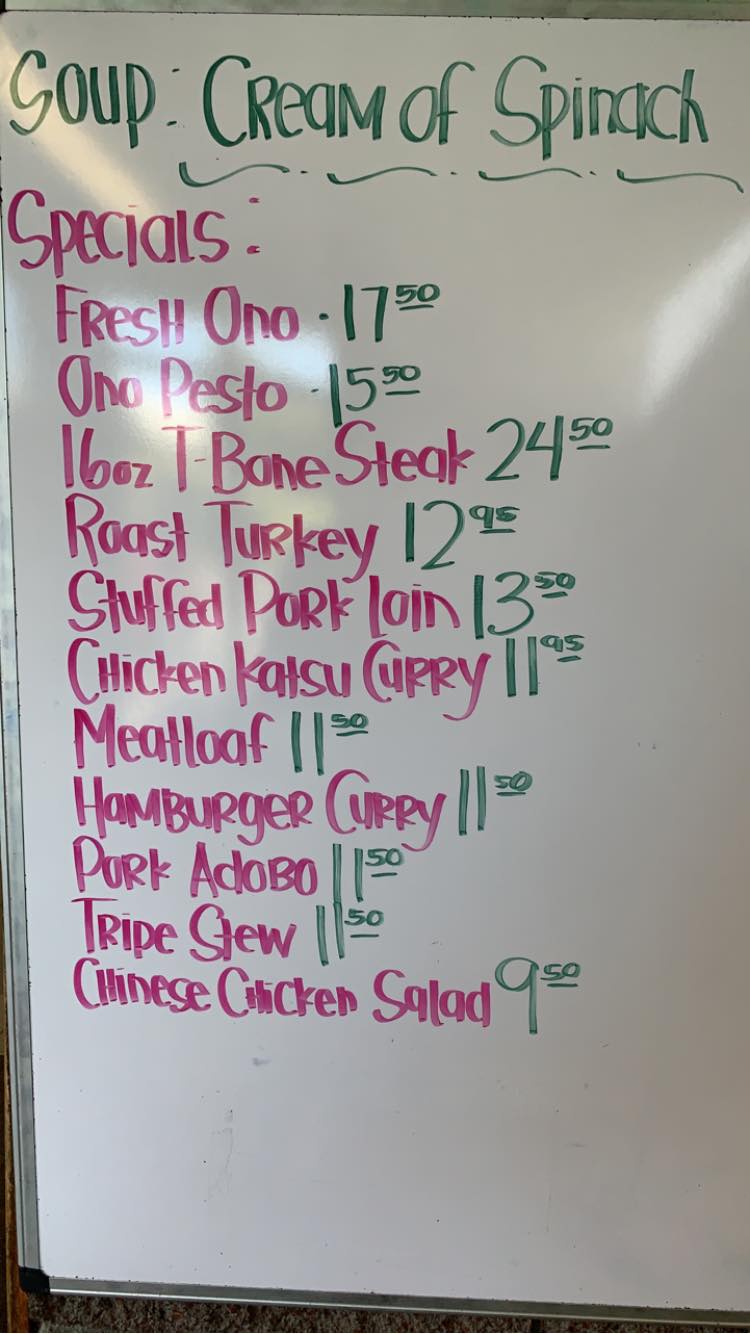 Soup: Cream of Spinach
Specials:
Fresh Ono · 17 50
Ono Pesto · 15 50
16oz T-Bone Steak 24 50
Roast Turkey 12 95
Stuffed Pork Loin 13 50
Chicken Katsu Curry 11 95
Meatloaf 11 50
Hamburger Curry 11 50
Pork Adobo 11 50
Tripe Stew 11 50
Chinese Chicken Salad 9 50